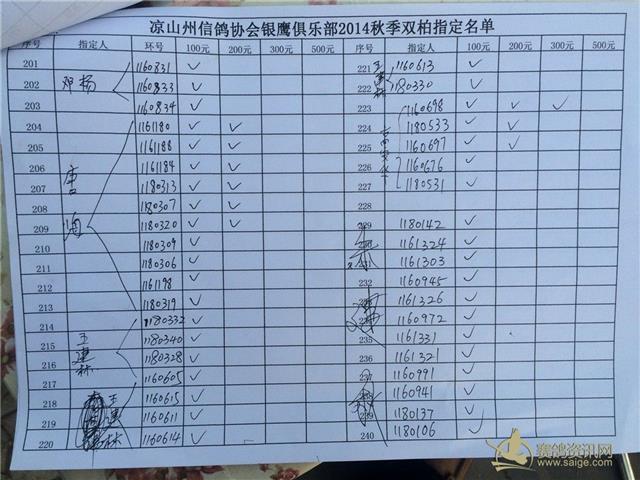 凉山州信鸽协会银鹰俱乐部2014秋季双柏指定名单
序号 指定人 环号 100元 200元 300元 500元 序号 指定人 环号 100元 200元 300元 500元
201 1160831 ✓ 221 王建林 1160613 ✓
202 邓杨 1160833 ✓ 222 1180330 ✓
203 1160834 ✓ 223 1160698 ✓ ✓ ✓
204 1161180 ✓ ✓ 224 1180533 ✓ ✓
205 1161188 ✓ ✓ 225 1160697 ✓ ✓
206 唐 1161184 ✓ ✓ 226 1160676 ✓
207 1180313 ✓ ✓ 227 1180531 ✓
208 1180307 ✓ ✓ 228
209 1180320 ✓ ✓ 229 1180142 ✓
210 1180309 ✓ 1161324 ✓
211 1180306 ✓ 231 1161303 ✓
212 1161198 ✓ 232 1160945 ✓
213 1180319 ✓ 1161326 ✓
214 1180332 ✓ 1160972 ✓
215 王建林 1180340 ✓ 235 1161331 ✓
216 1180328 ✓ 236 1161321 ✓
217 1160605 ✓ 237 1160991 ✓
218 王建林 1160615 ✓ 1160941 ✓
219 1160611 ✓ 1180137 ✓
220 1160614 ✓ 240 1180106 ✓
赛鸽资讯网
www.saige.com